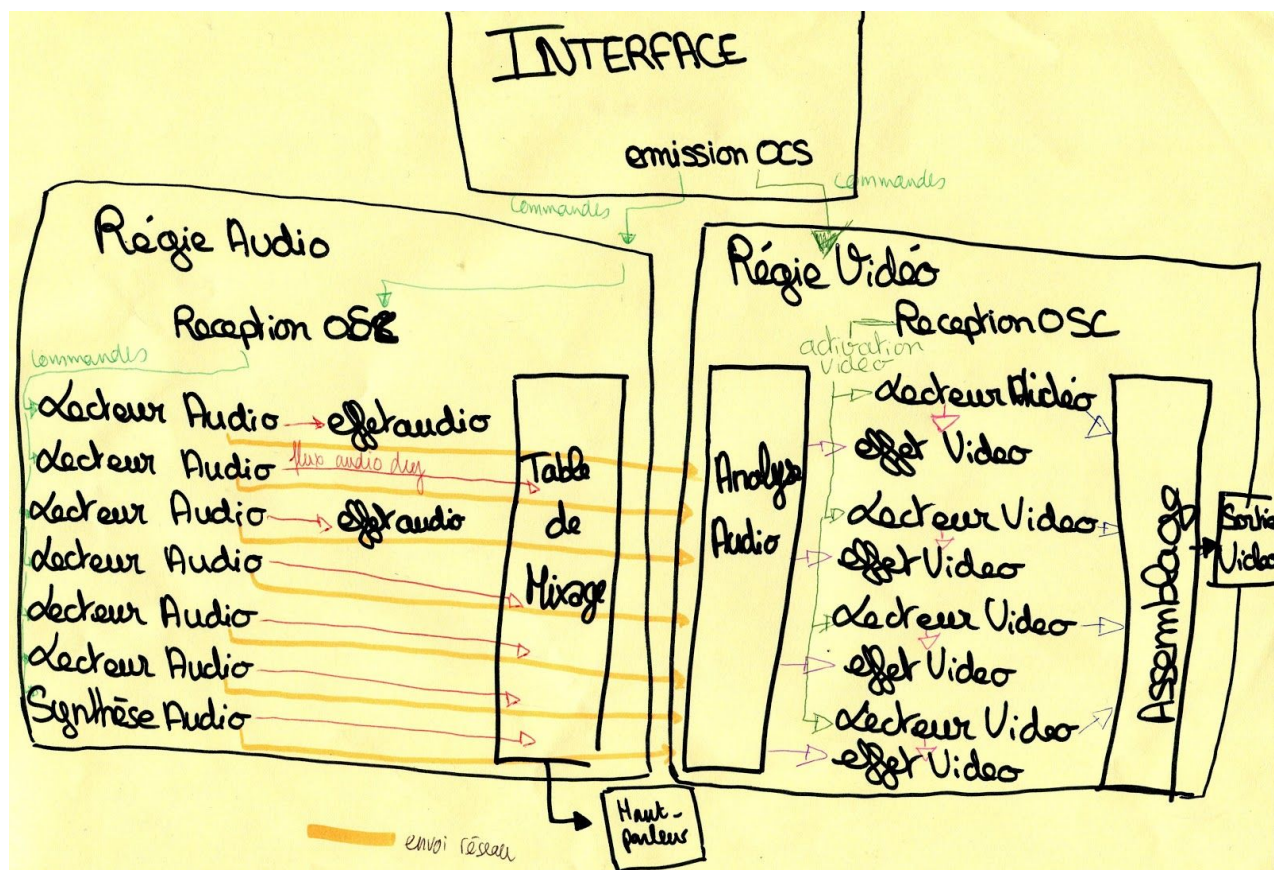 INTERFACE
emission OCS
commandes
commandes
Régie Audio
Reception OSC
commandes
Lecteur Audio
effet audio
Lecteur Audio
flux audio
Lecteur Audio
effet audio
Lecteur Audio
Lecteur Audio
Lecteur Audio
Synthèse Audio
Table
de
Mixage
Haut-
parleur
envoi réseau
Régie Vidéo
Reception OSC
activation
vidéo
Analyse
Audio
Lecteur Vidéo
effet Video
Lecteur Video
effet Video
Lecteur Video
effet Video
Lecteur Video
effet Video
Assemblage
Sortie
Video